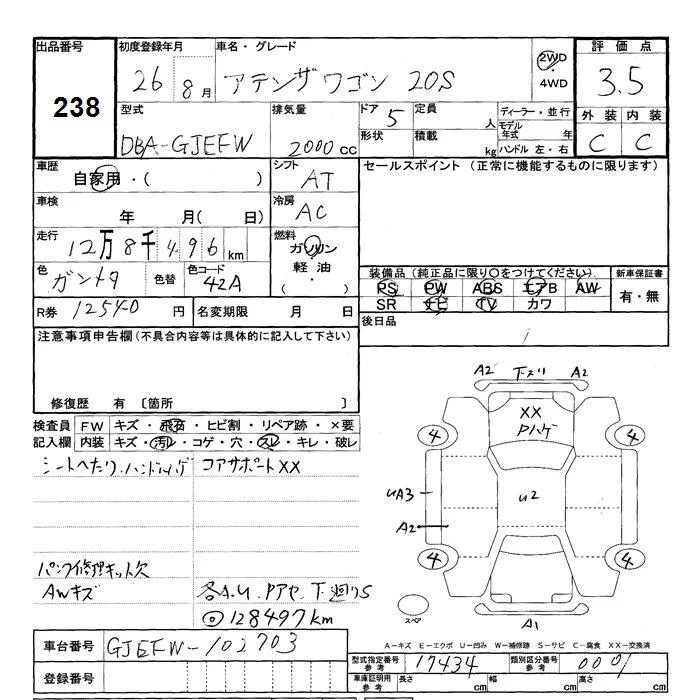 出品番号 初度登録年月 車名・グレード 評価点
238
26 8月 アテンザワゴン 20S 2WD ・ 4WD 3.5
型式 排気量 ドア 5 定員 人 ディーラー・並行 外装 内装
DBA-GJEFW 2000cc 形状 積載 kg モデル年式 年 ハンドル 左・右 C C
車歴 自家用・( ) シフト AT セールスポイント (正常に機能するものに限ります)
車検 年 月( 日) 冷房 AC
走行 12万8千496km 燃料 ガソリン 軽油 ・( )
色 ガンメタ 色替 色コード 42A
装備品(純正品に限り○をつけてください) 新車保証書
PS PW ABS エアB AW 有・無
SR ナビ TV カワ
R券 12540 円 名変期限 月 日 後日品
注意事項申告欄(不具合内容等は具体的に記入して下さい)
修復歴 有 [箇所 ]
検査員 FW キズ・飛石・ヒビ割・リペア跡・×要
記入欄 内装 キズ・汚レ・コゲ・穴・スレ・キレ・破レ
シートヘたり、ハンドルハゲ コアサポートXX
パンク修理キット欠
AWキズ 各A.U.Pアセ.下廻りS
◎128497km
A2 下スリ A2
XX
Pハゲ
4 4
UA3 U2
A2
4 4
スペア A1
A−キズ E−エクボ U−凹み W−補修跡 S−サビ C−腐食 XX−交換済
車台番号 GJEFW-102703
型式指定番号 参考 17434 類別区分番号 参考 0001
登録番号 車庫証明用 参考 長さ cm 幅 cm 高さ cm